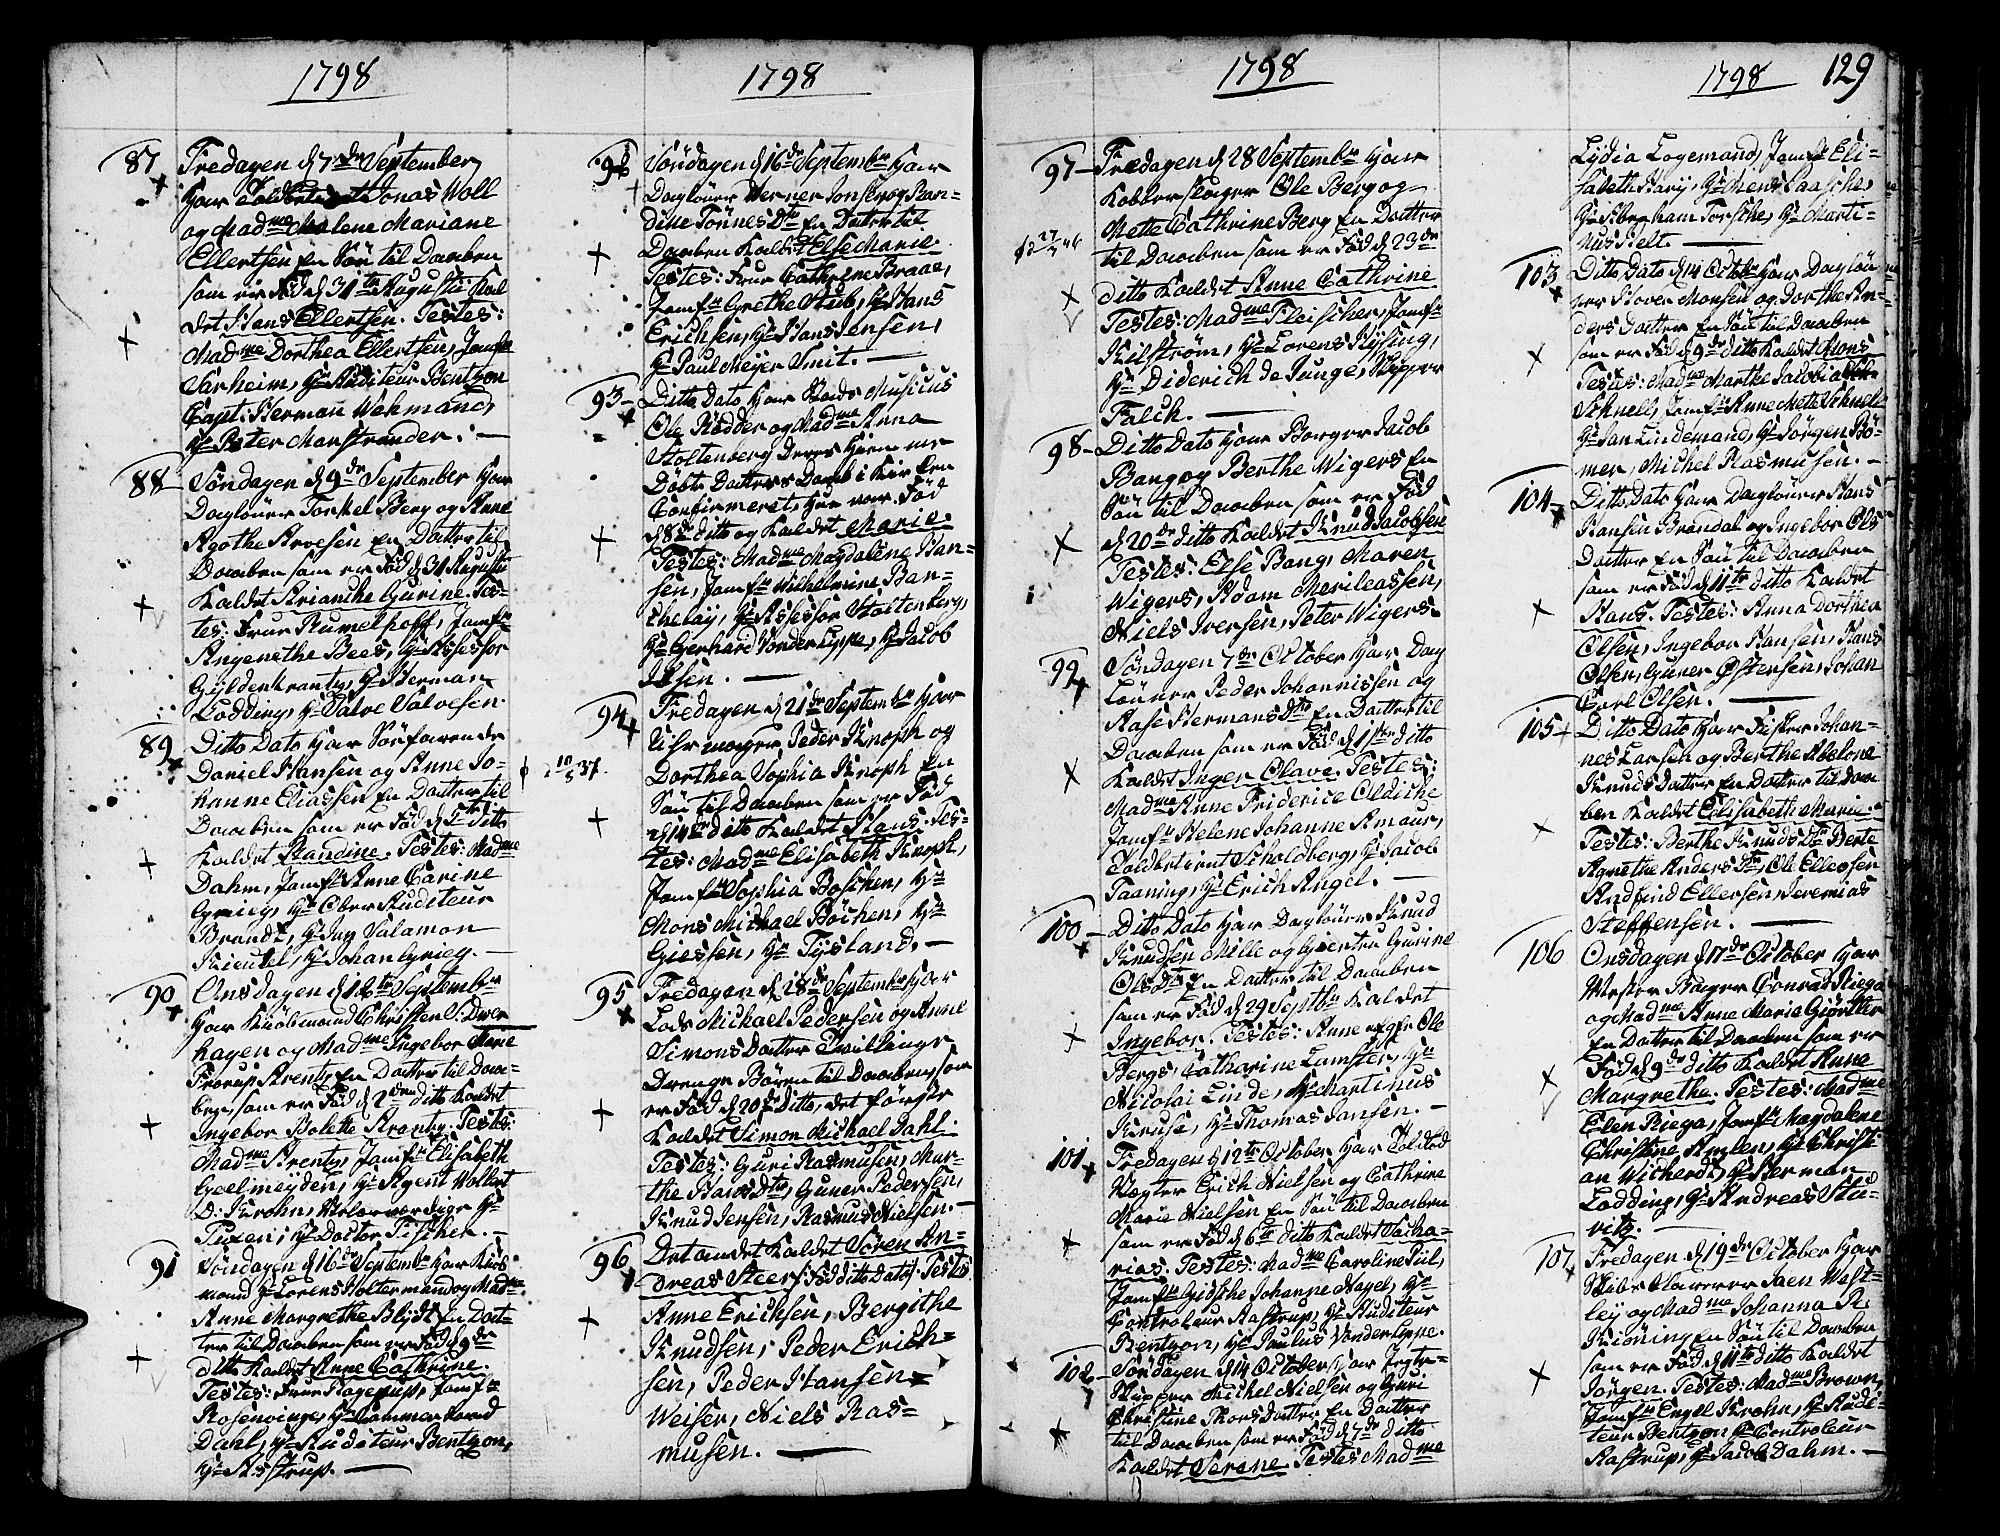 1798
87 Fredagen d 7de September
haer Toldbetient Jonas Woll
og Madme Malene Mariane
Ellertsen En Søn til Daaben
som er Fød d 31te Augusti Kal
det Hans Ellertsen. Testes:
Madme Dorthea Ellertsen, Jomfr
Sarheim, Hr Auditeur Bentzon
Capt: Herman Wehmand,
Hr Peter Marstrander. —
88 Søndagen d 9de September haer
Dagløner Torkel Berg og Anne
Agathe Arvesen En Datter til
Daaben som er Fød d 31 Augusti
Kaldet Arianche Gurine. Tes-
tes: Frue Rumelhoff, Jomfr
Angenethe Bees, Hr Assessor
Gyldenkrantz, Hr Herman
Lodding, Hr Salve Salvesen.
89 Ditto Dato haer Sørfarende
Daniel Hansen og Anne Jo-
hanne Eliassen En Datter til
Daaben som er Fød d 5te ditto
Kaldet Randine. Testes: Madme
Dahm, Jomfr Anne Carine
Grieg, Hr Ober Auditeur
Brandt, Hr Jan Salamon
Kreutel, Hr Johan Grieg. —
90 Onsdagen d 12te September
haer Kiøbmand Christen S: Dwer
hagen og Madme Ingebor Marie
Frorup Arentz En Datter til Daa-
ben, som er Fød d 2den ditto Kaldet
Ingebor Bolette Krantz. Testes:
Madme Arentz, Jomfr Elisabeth
Geelmeyden, Hr Agent Wollert
D: Krohn, Velærværdige Hr
Tuxen, Hr Doctor Fischer. —
91 Søndagen d 16de Septembr haer Kiøb
mand Hr Lorens Holtermand og Madme
Anne Margrethe Blydt En Dat-
ter til Daaben som er Fød d 9de
ditto Kaldet Anne Cathrine.
Testes: Frue Hagerup, Jomfr
Rosenvinge, Hr Cammerherre
Dahl, Hr Auditeur Bentzon,
Hr Astrup. —
1798
92 Søndagen d 16de Septembr haer
Dagløner Werner Jonsen og Ran-
dine Tönnes Dtr En Datter til
Daaben Kaldet Else Marie.
Testes: Frue Cathrine Braae,
Jomfr Grethe Stub, Hr Hans
Erichsen, Hr Hans Jensen,
Hr Paul Meyer Smit. —
93 Ditto Dato haer Stads Musicus
Ole Rödder og Madme Anna
Stoltenberg Deres hiemme
Döbte Datters Daab i Kirken
Confirmeret, hun var Fød
d 8de ditto og Kaldet Marie.
Testes: Madme Magdalene Han-
sen, Jomfr Wilhelmine Ban-
thelay, Hr Assessor Stoltenberg,
Hr Gerhard Vonderlippe, Hr Jacob
Ibsen. —
94 Fredagen d 21de Septembr haer
Uhrmager Peder Knoph og
Dorthea Sophia Knoph En
Søn til Daaben som er Fød
d 14de ditto Kaldet Hans. Tes-
tes: Madme Elisabeth Knoph,
Jomfr Sophia Böschen, Hr
Mons Michael Böchen, Hr
Giessen, Hr Tysland. —
10/5 37.
95 Fredagen d 28de Septembr haer
Lods Michael Pedersen og Anne
Simons Datter Twillinge
Drenge Börn til Daaben, som
er Fød d 20de ditto, det förste
Kaldet Simon Michael Dahl.
Testes: Guri Rasmusen, Mar-
the Hans Dtr, Guner Pedersen,
Knud Jensen, Rasmus Nielsen. —
96 Det andet Kaldet Søren An-
dreas Steen (Fød ditto Dato). Testes
Anne Erichsen, Bergithe
Knudsen, Peder Erich-
sen, Peder Hansen
Weiser, Niels Ras-
musen. —
1798
97 Fredagen d 28 Septembr haer
Kobberslager Ole Berg og
Mette Cathrine Berg En Datter
til Daaben som er Fød d 23de
ditto Kaldet Anne Cathrine
Testes: Madme Fleischer, Jomfr
Kilström, Hr Lorens Kysing,
Hr Diderich de Junge, Wepper
Falch. —
98 Ditto Dato haer Borger Jacob
Bang og Berthe Wigers En
Søn til Daaben som er Fød
d 20de ditto Kaldet Knud Jacobsen
Testes: Else Bang, Maren
Wigers, Adam Merileassen,
Niels Iversen, Peter Wigers
99 Søndagen 7de October haer Dag
Löner Peder Johannissen og
Aase Hermans Dtr En Datter til
Daaben som er Fød d 1ste ditto
Kaldet Inger Olave. Testes:
Madme Anne Friderice Oldiche
Jomfr Helene Johanne Amaur,
Toldbetient Scholdberg, Hr Jacob
Taaning, Hr Erich Angel. —
100 Ditto Dato haer Dagløner Knud
Knudsen Mille og Giertru Gurine
Ols Dtr En Datter til Daaben
som er Fød d 29 Septbr Kaldet
Ingebor. Testes: Anne afgfr Ole
Bergs, Catharine Lamster, Hr
Nicolai Linde, Hr Martinus
Kruse, Hr Thomas Jansen. —
101 Fredagen d 12te October haer Toldbod
Vægter Erich Nielsen og Cathrine
Marie Nielsen En Søn til Daaben
som er Fød d 6te ditto Kaldet Sacha-
rias. Testes: Madme Caroline Piil,
Jomfr Gidsche Johanne Nagel, Hr
Controleur Rastrup, Hr Auditeur
Bentzon, Hr Paulus Vonderlippe.
102 Søndagen d 14 October, haer Jegte-
Skipper Michel Nielsen og Guri
Christine Thors Datter En Datter
til Daaben som er Fød d 7de ditto
Kaldet Serene. Testes Madme
1798 129
Lydia Logemand, Jomfr Eli-
sabeth Harij, Hr Mens Paasche,
Hr Abraham Forsche, Hr Marti-
nus Helt. —
103 Ditto Dato d 14 Octobr haer Dagløn
er Haver Monsen og Dorthe An-
ders Datter En Søn til Daaben
som er Fød d 9de ditto Kaldet Mons
Testes: Madme Marthe Jacobia
Schnell, Jomfr Anne Mete Schnell
Hr Jan Lindemand, Hr Jörgen Bö-
mer, Michel Rasmusen. —
104 Ditto Dato haer Dagløner Hans
Hansen Brandal og Ingebor Ols
Datter En Søn til Daaben
som er Fød d 11te ditto Kaldet
Hans. Testes: Anna Dorthea
Olsen, Ingebor Hansen, Hans
Olsen, Guner Østersen, Johan
Carl Olsen. —
105 Ditto Dato haer Fisker Johan-
nes Larsen og Berthe Abelone
Knuds Datter En Datter til Daa
ben Kaldet Elisabeth Marie.
Testes: Berthe Knuds Dtr Berte
Agnethe Anders Dtr, Ole Ellessen
Andfind Ellersen, Jeremias
Steffensen. —
106 Onsdagen d 17de October haer
Mester Bager Conrad Riege
og Madme Anne Marie Giörtler
En Datter til Daaben som er
Fød d 9de ditto Kaldet Anne
Margrethe. Testes: Madme
Elen Riega, Jomfr Magdalene
Christine Amlen, Hr Christi-
an Wicherdt, Hr Herman
Lodding, Hr Andreas Stu-
vitz.
107 Fredagen d 19de October haer
Skibs Klarerer Jaen West-
ley og Madme Johanna R:
Kröning En Søn til Daaben
som er Fød d 11te ditto Kaldet
Jörgen. Testes: Madme Brown,
Jomfr Engel Krohn, Hr Audi-
teur Bentzon Hr Controleur
Rastrup, Hr Jacob Dahm. —